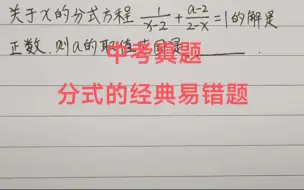 关于x的分式方程 1/(x-2) + (a-2)/(2-x) = 1的解是
正数,则a的取值范围是______.
中考真题
分式的经典易错题